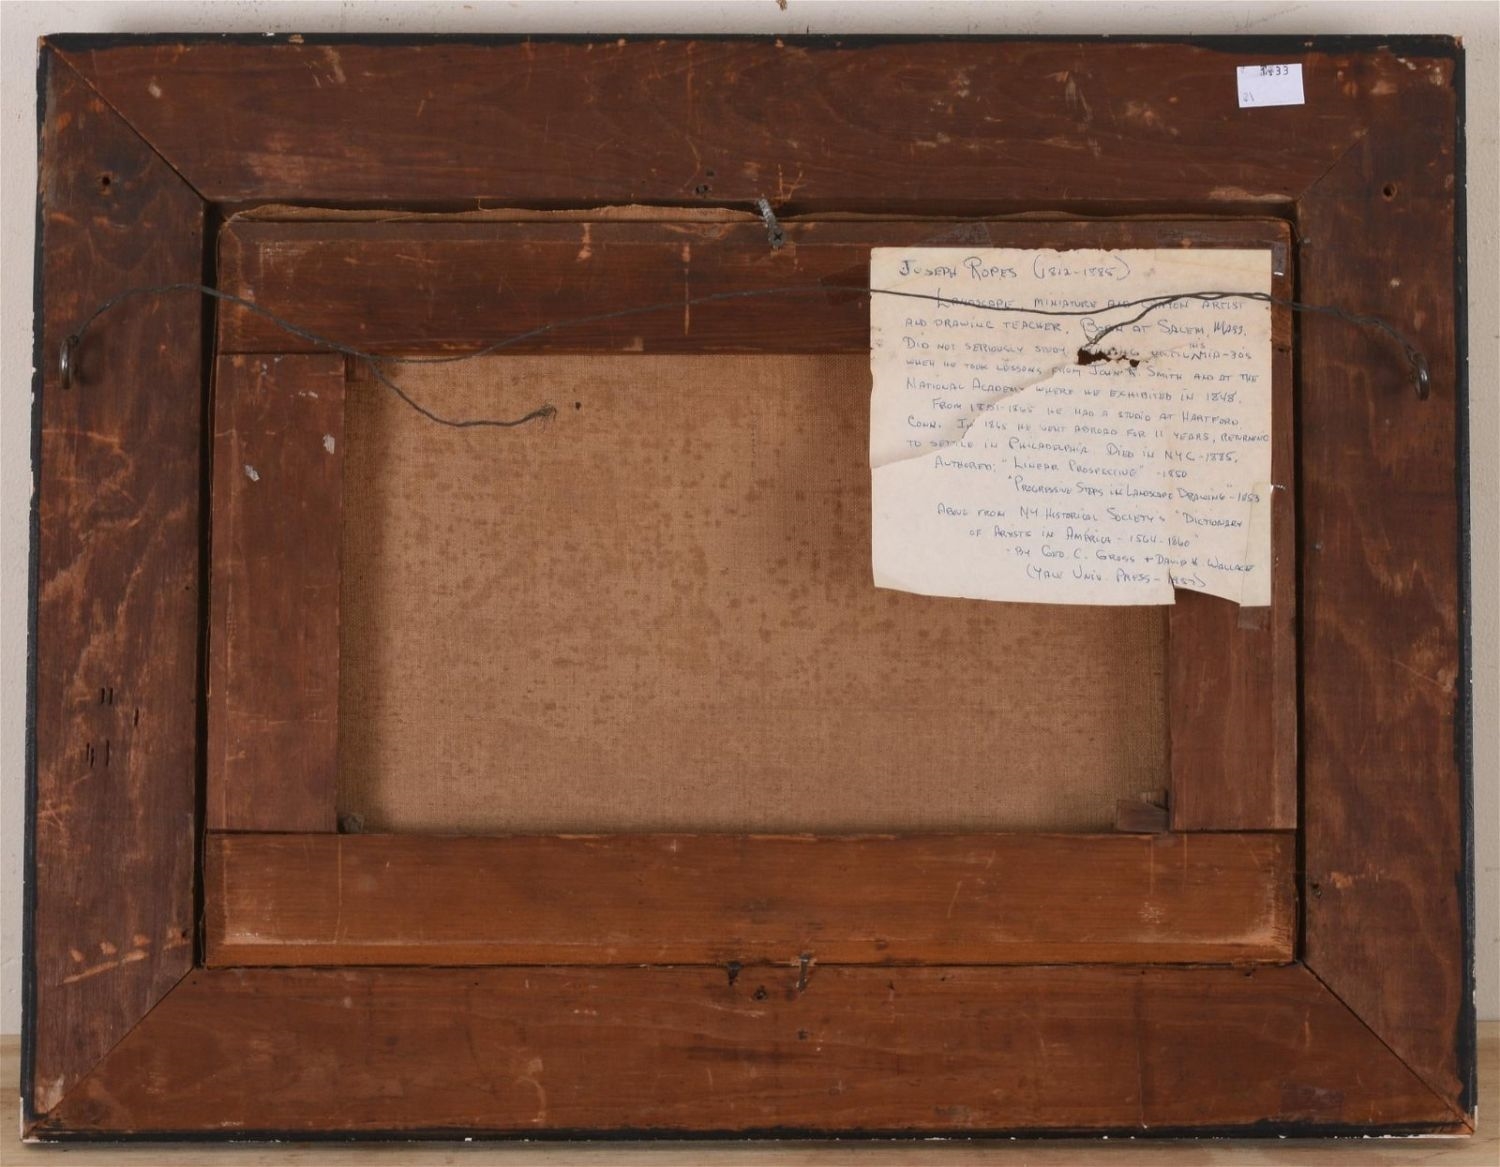 33
JOSEPH ROPES (1812-1885)
LANDSCAPE, MINIATURE AND CRAYON ARTIST
AND DRAWING TEACHER. BORN AT SALEM, MASS.
DID NOT SERIOUSLY STUDY UNTIL HIS MID-30'S
WHEN HE TOOK LESSONS FROM JOHN R. SMITH AND AT THE
NATIONAL ACADEMY WHERE HE EXHIBITED IN 1848.
FROM 1851-1865 HE HAD A STUDIO AT HARTFORD
CONN. IN 1865 HE WENT ABROAD FOR 11 YEARS, RETURNING
TO SETTLE IN PHILADELPHIA. DIED IN NYC-1885.
AUTHORED: "LINEAR PROSPECTIVE" -1850
"PROGRESSIVE STEPS IN LANDSCAPE DRAWING" -1853
ABOVE FROM NY HISTORICAL SOCIETY'S "DICTIONARY
OF ARTISTS IN AMERICA - 1564-1860"
- BY GEO. C. GROSS + DAVID H. WALLACE
(YALE UNIV. PRESS - 1957)